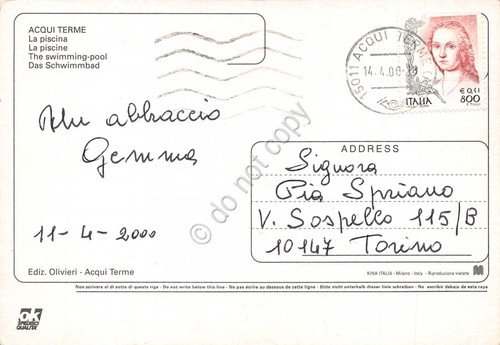 ACQUI TERME
La piscina
La piscine
The swimming-pool
Das Schwimmbad
15011 ACQUI TERME
14.4.00
€ 0,41
800
ITALIA
abbraccio
Gemma
11-4-2000
ADDRESS
Signora
Pia Spriano
V. Sospello 115/B
10147 Torino
do not copy
Ediz. Olivieri - Acqui Terme
KINA ITALIA - Milano - Italy - Riproduzione vietata
Non scrivere al di sotto di questa riga - Do not write below this line - Ne pas écrire au dessous de cette ligne - Bitte nicht unterhalb dieser linie schreiben - No escribir debajo de esta raya
ok
SPECIMEN
QUALITÀ